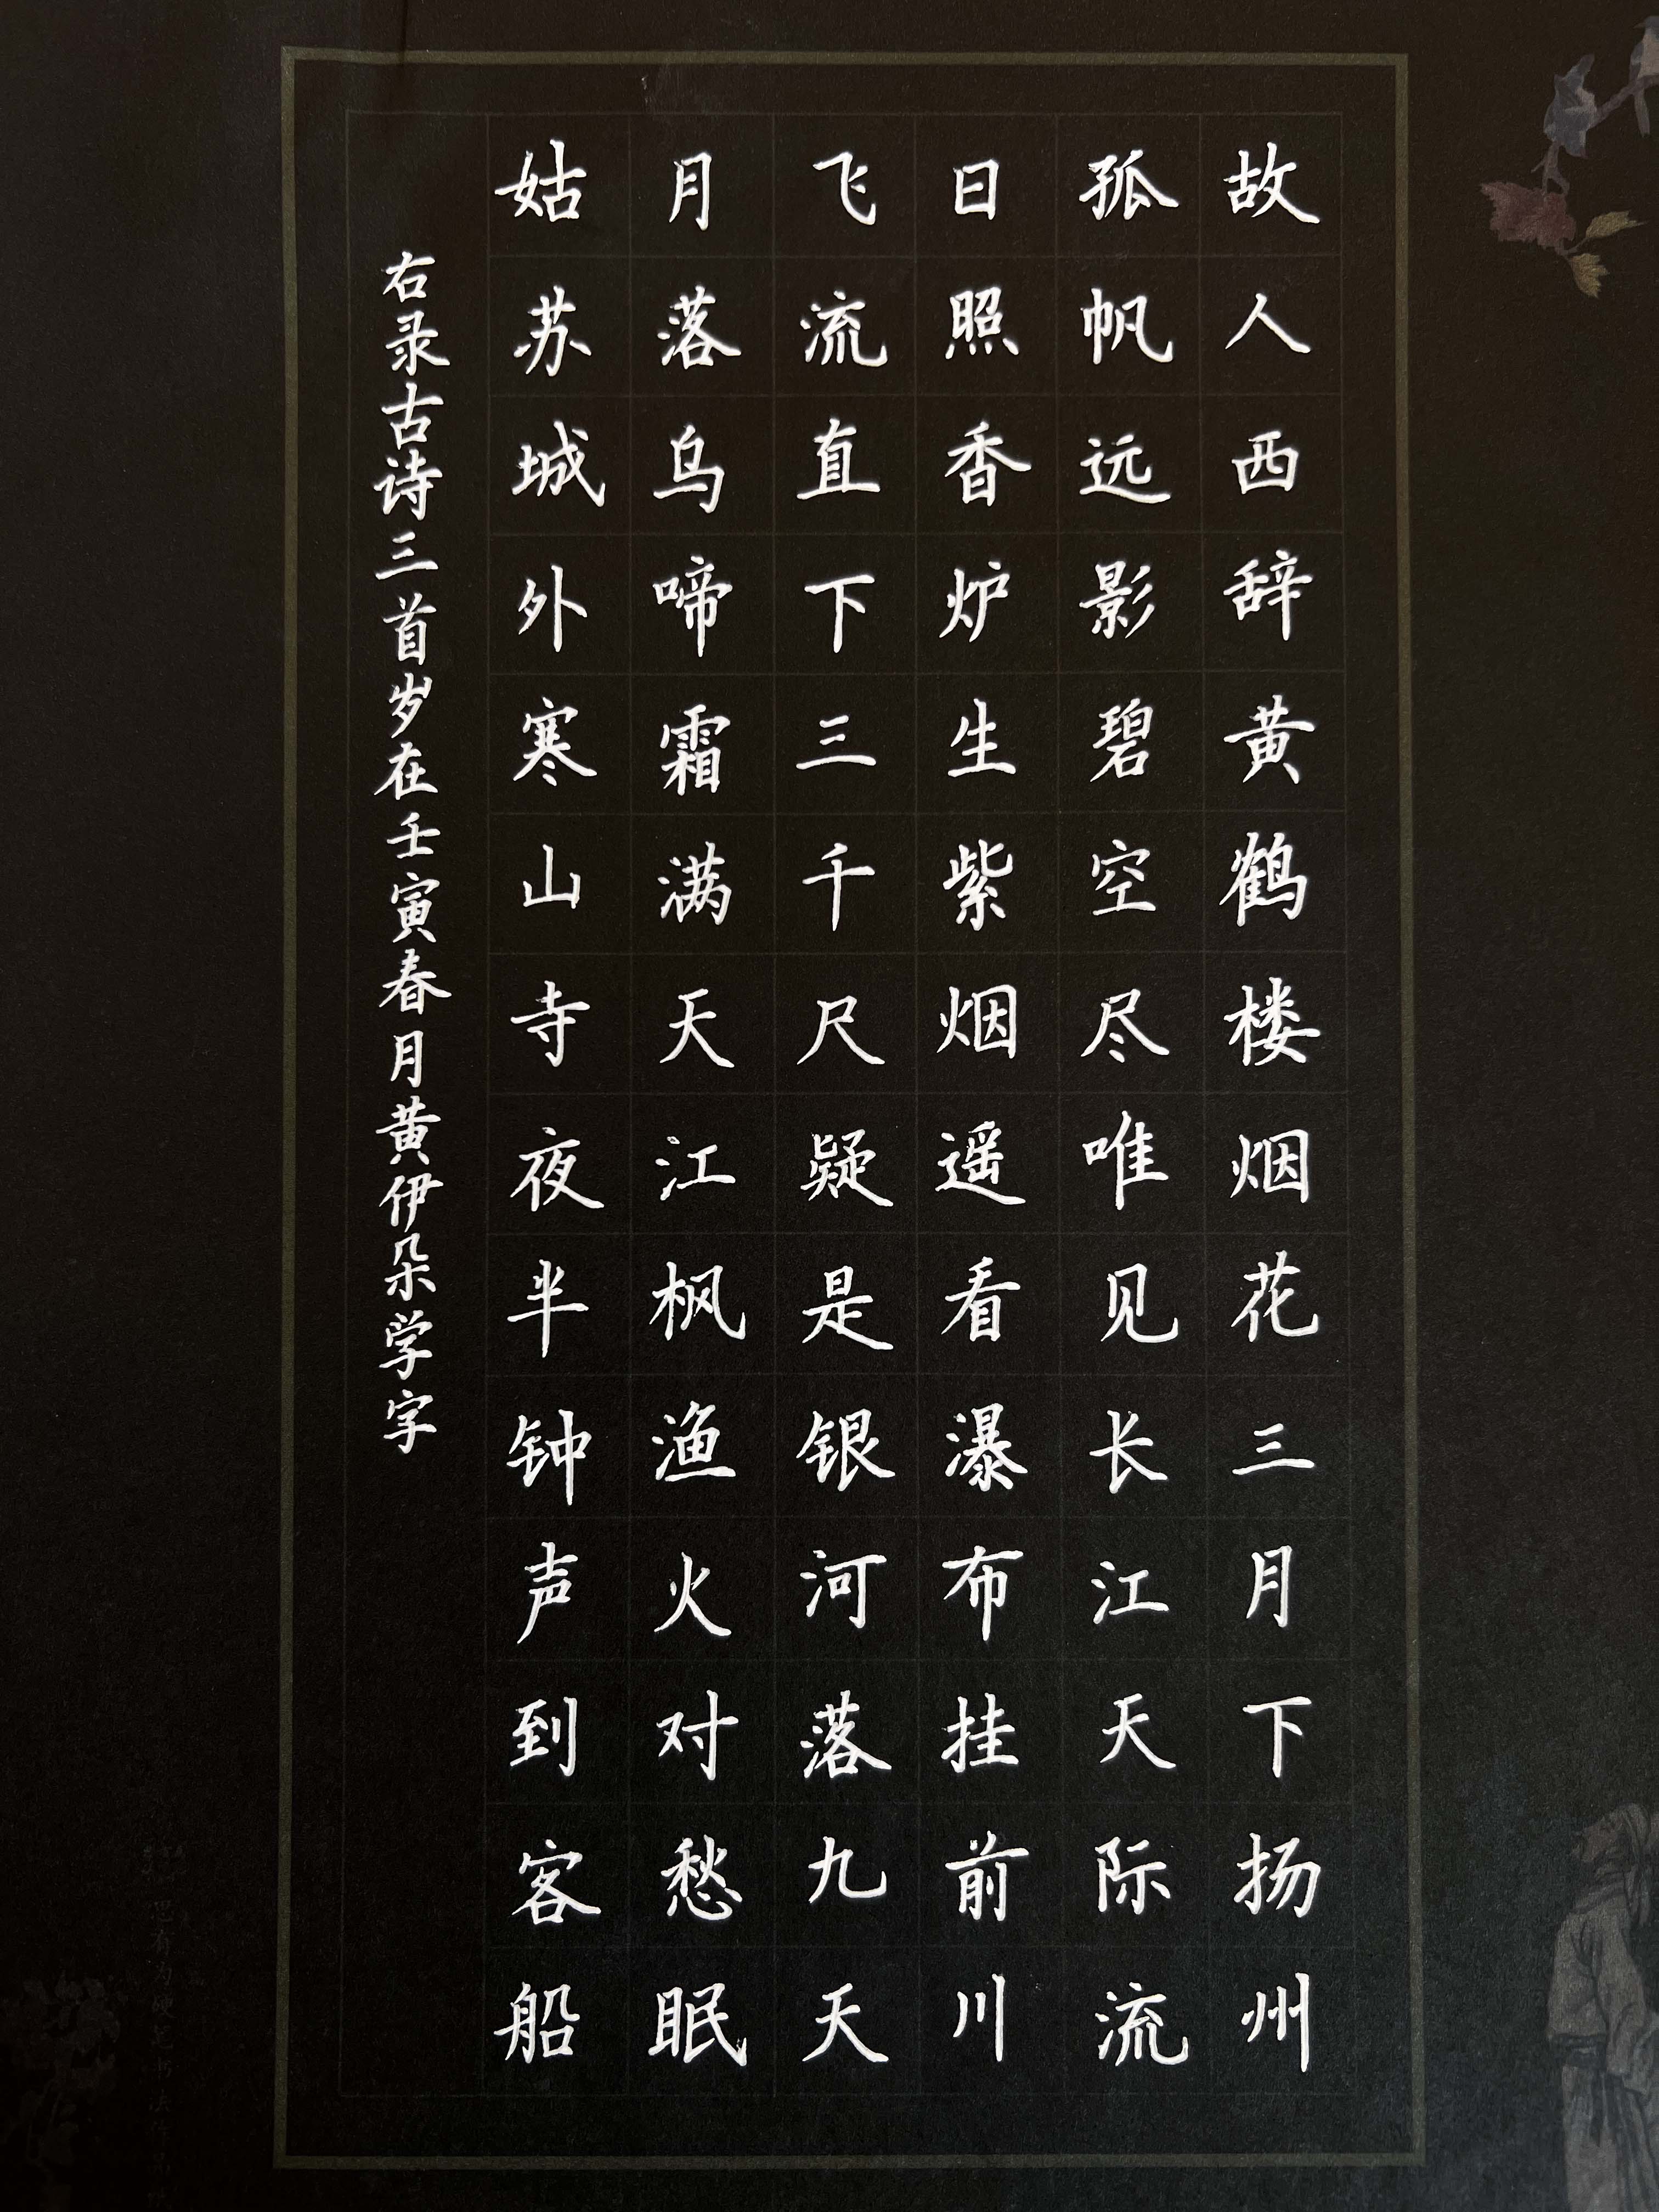 故人西辞黄鹤楼烟花三月下扬州
孤帆远影碧空尽唯见长江天际流
日照香炉生紫烟遥看瀑布挂前川
飞流直下三千尺疑是银河落九天
月落乌啼霜满天江枫渔火对愁眠
姑苏城外寒山寺夜半钟声到客船
右录古诗三首岁在壬寅春月黄伊朵学字